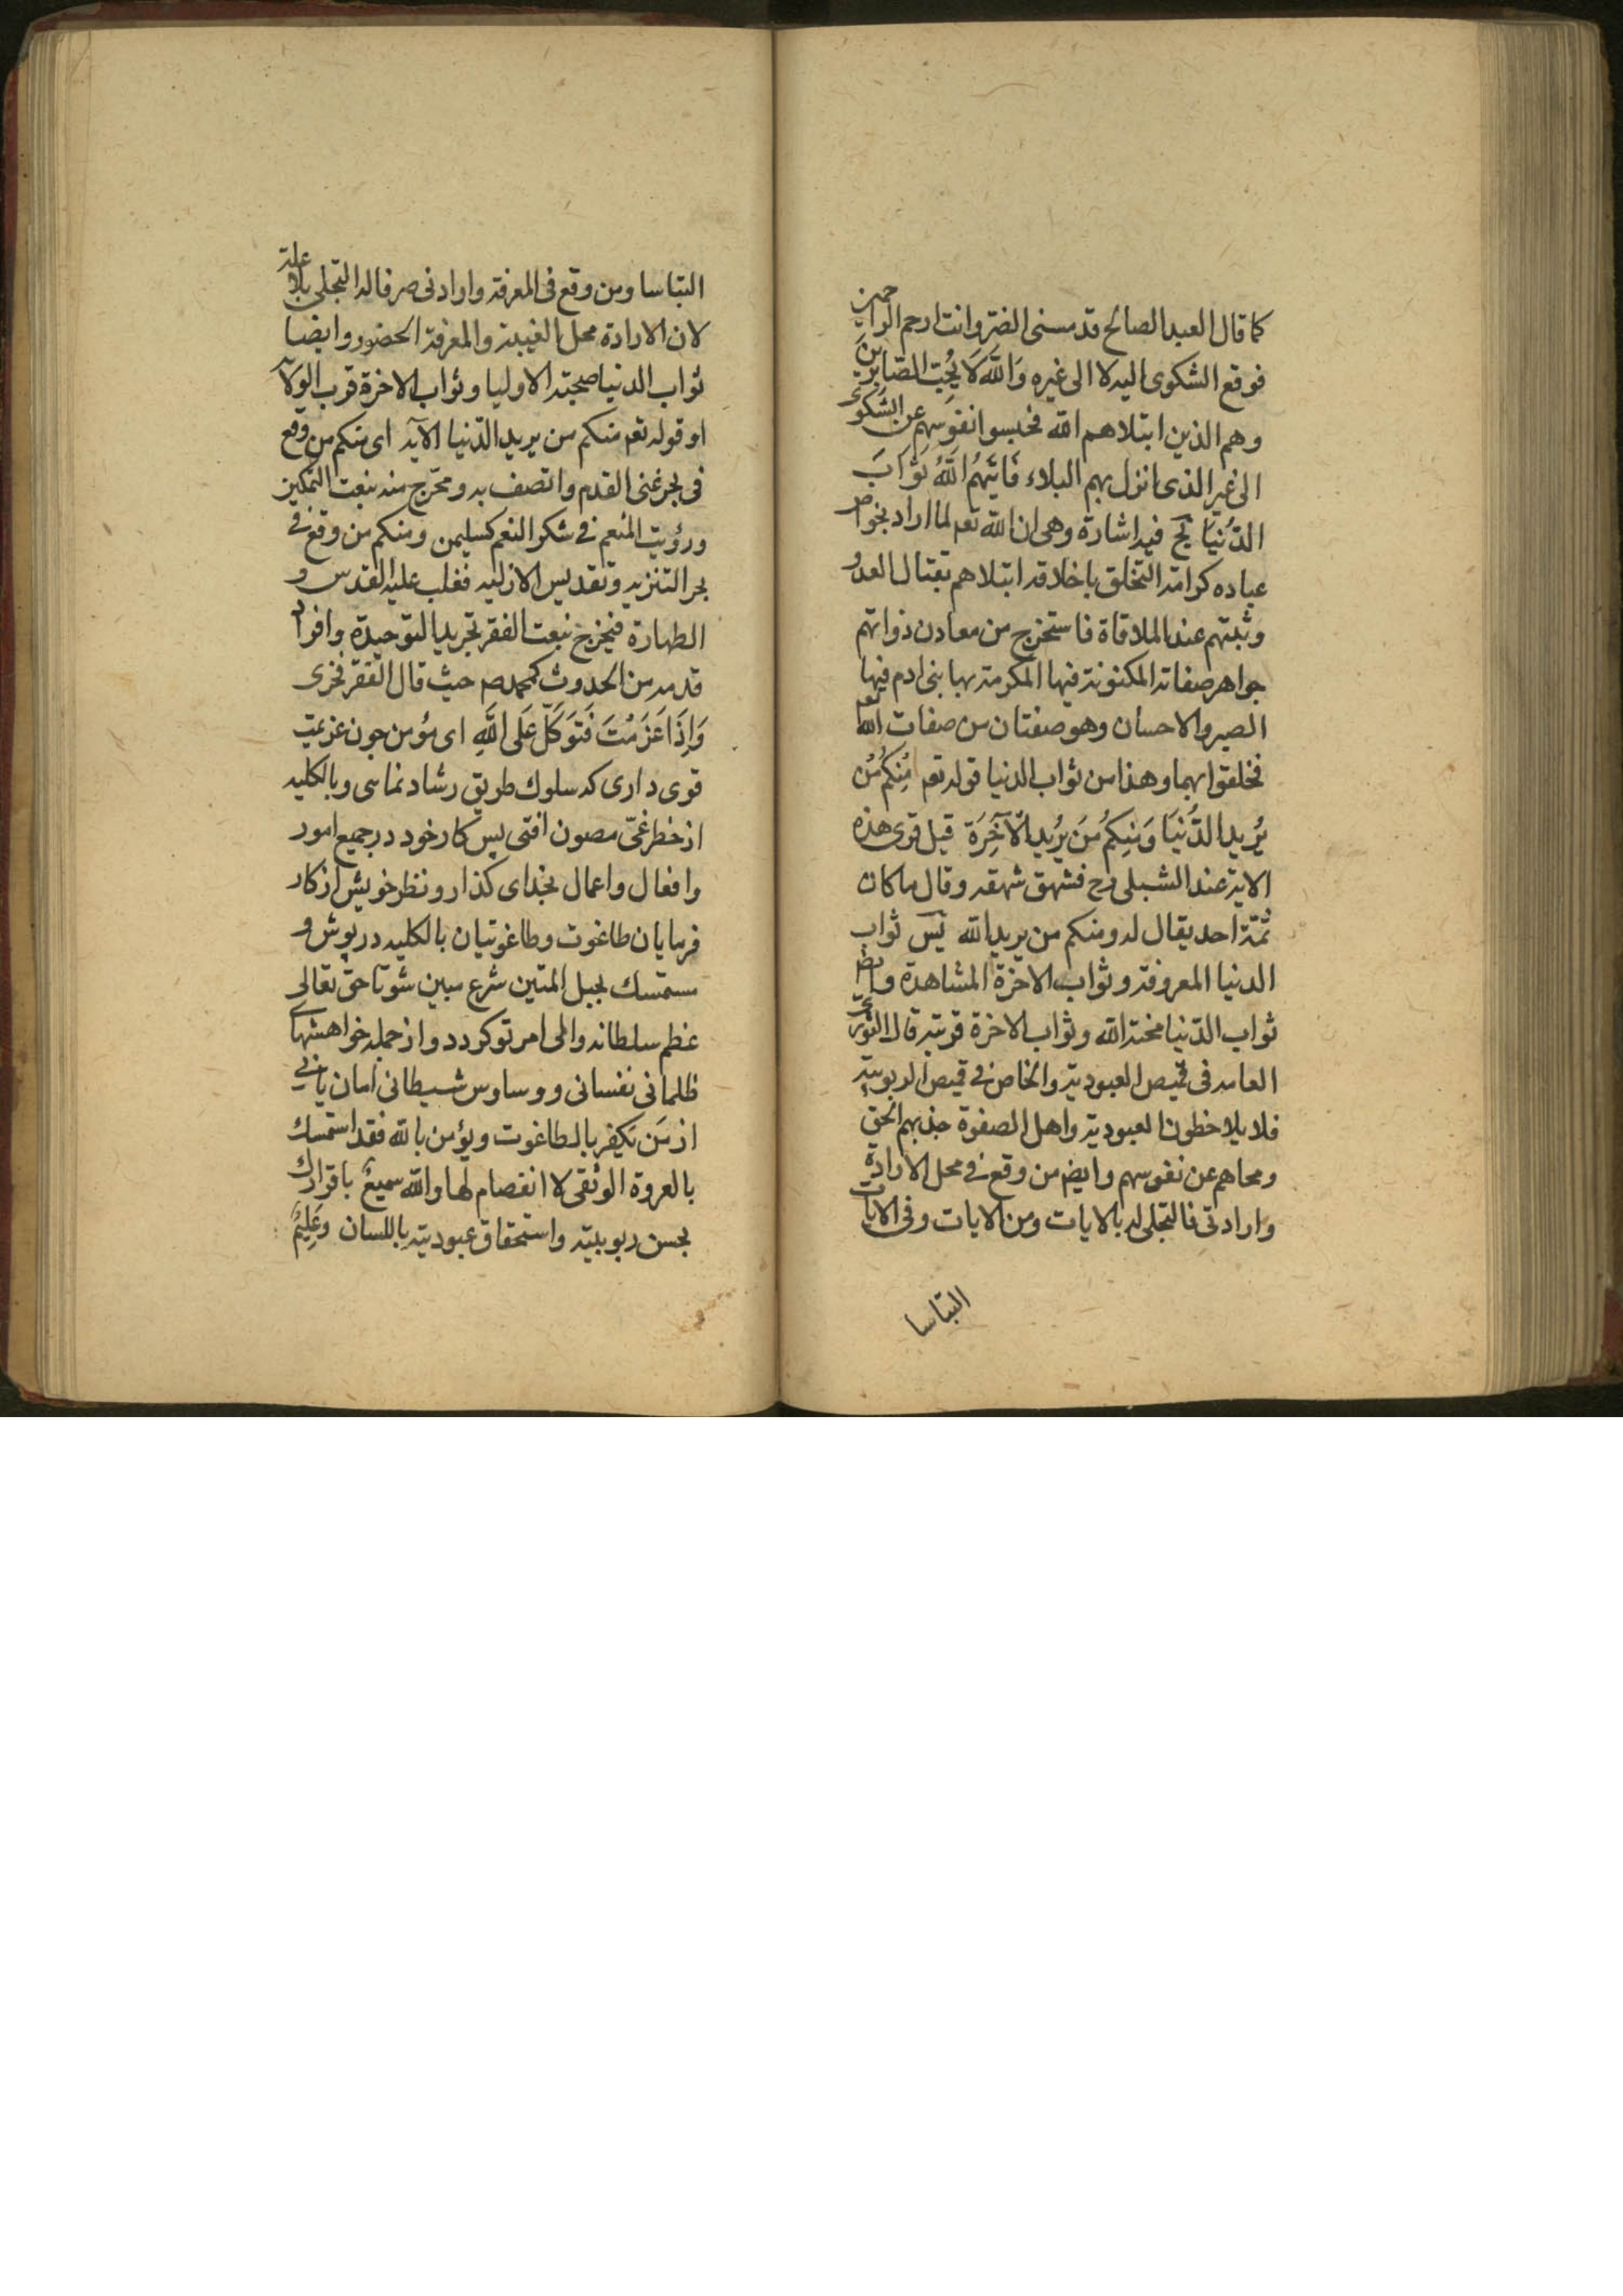 كما قال العبد الصالح قد مسنى الضر وانت ارحم الراحمين
فوقع الشكوى اليه لا الى غيره وَاللّٰهَ لَا يُحِبّ الصّابِرِينَ
وهم الذين ابتلاهم الله فحبسوا انفوسهم عن الشكوى
الى غير الذى انزل بهم البلاء فَاتَيهُمُ اللّٰهُ ثَوَابَ
الدُنيَا فيه اشارة وهى ان الله تعه لما اراد بخواص
عباده كرامة التخلق باخلاقه ابتلاهم بقتال العدو
وثبتهم عند الملاقاة فاستخرج من معادن ذواتهم
جواهر صفاته المكنونة فيها المكرمة بها بنى ادم فيها
الصبر والاحسان وهو صفتان من صفات الله تعه
فخلقوا بهما وهذا من ثواب الدنيا قوله تعه مِنكُم مَن
يُرِيدُ الدُّنيَا وَمِنكُم مَن يُرِيدُ الآخِرَة قيل قرى هذه
الاية عند الشبلى رح فشهق شهقه وقال ما كان
ثمّة احد يقال له ومنكم من يريد الله ثواب
الدنيا المعروفة وثواب الاخرة المشاهدة وايضا
ثواب الدّنيا محبة الله وثواب الاخرة قربته قال الثورى
العامه فى قميص العبودية والخاص فى قميص الربوبية
فلا يلاحظون العبودية واهل الصفوة جذبهم الحق
ومحاهم عن نفوسهم وايضا من وقع فى محل الارادة
وارادتى فالتجلى له بالايات ومن الايات وفى الايات
التباسا
التباسا ومن وقع فى المعرفة وارادنى صرفا له التجلى بلا علة
لان الارادة محل الغيبة والمعرفة الحضور وايضا
ثواب الدنيا صحبة الاوليا وثواب الاخرة قرب الولاء
او قوله تعه منكم من يريد الدّنيا الآيه اى منكم من وقع
فى بحر غنى القدم واتصف به ومخرج منه بنعت التمكين
ورؤيت المنعم فى شكر النعم كسليمن ومنكم من وقع فى
بحر التنزيه وتقديس الازليه فغلب عليه القدس و
الطهارة فيخرج بنعت الفقر تجريد التوحيدة وافراد
قدمه من الحدوث كمحمد صم حيث قال الفقر فخرى
وَاِذَا عَزَمْتَ فَتَوَكَّل عَلَى اللّٰهِ اى مؤمن چون عزيمت
قوى دارى كه سلوك طريق رشاد نماسى وبالكليه
از خطر غىّ مصون افتى پس كار خود در جميع امور
وافعال واعمال بخداى كذار ونظر خويش از كار
فرمايان طاغوت وطاغوتيان بالكليه در پوش و
مستمسك بحبل المتين شرع مبين شو تا حق تعالى
عظم سلطانه والى امر تو كردد واز جمله خواهشهاى
ظلمانى نفسانى ووساوس شيطانى امان يابى
از مَن يَكفر بالطاغوت ويؤمن بالله فقد استمسك
بالعروة الوثقى لا انفصام لها والله سميعٌ باقرارك
بحسن ربوبيته واستحقاق عبوديته باللسان وَعَلِيمٌ